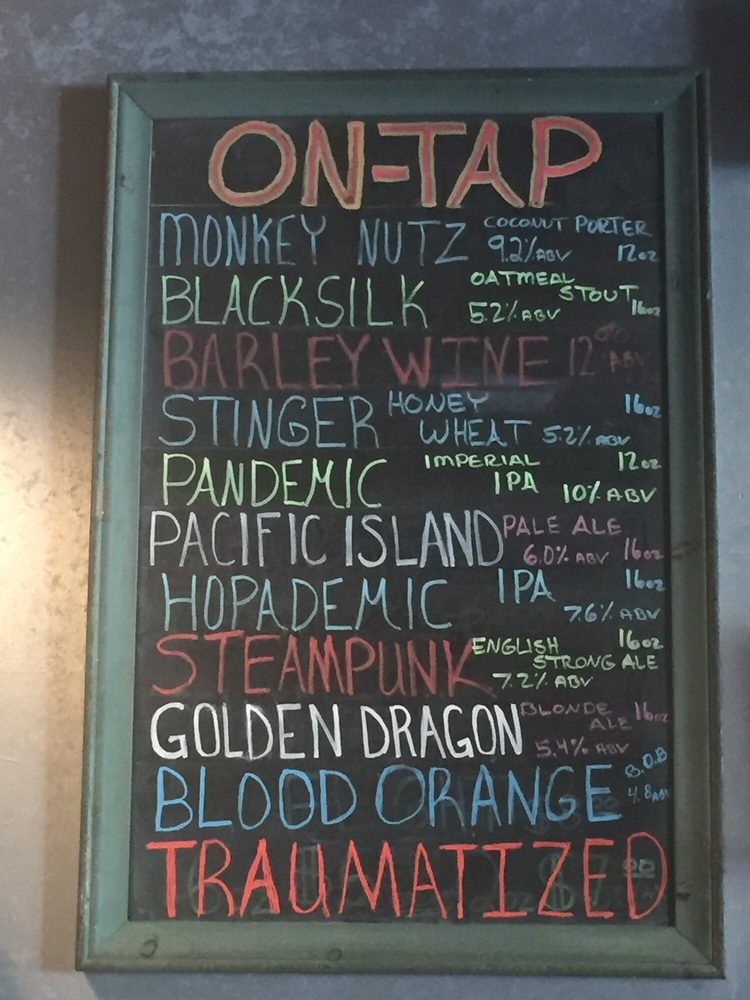 ON-TAP
MONKEY NUTZ COCONUT PORTER 9.2% ABV 12oz
BLACKSILK OATMEAL STOUT 5.2% ABV 16oz
BARLEY WINE 12% ABV
STINGER HONEY WHEAT 5.2% ABV 16oz
PANDEMIC IMPERIAL IPA 10% ABV 12oz
PACIFIC ISLAND PALE ALE 6.0% ABV 16oz
HOPADEMIC IPA 7.6% ABV 16oz
STEAMPUNK ENGLISH STRONG ALE 7.2% ABV 16oz
GOLDEN DRAGON BLONDE ALE 5.4% ABV 16oz
BLOOD ORANGE B.O.B 4.8 ABV
TRAUMATIZED